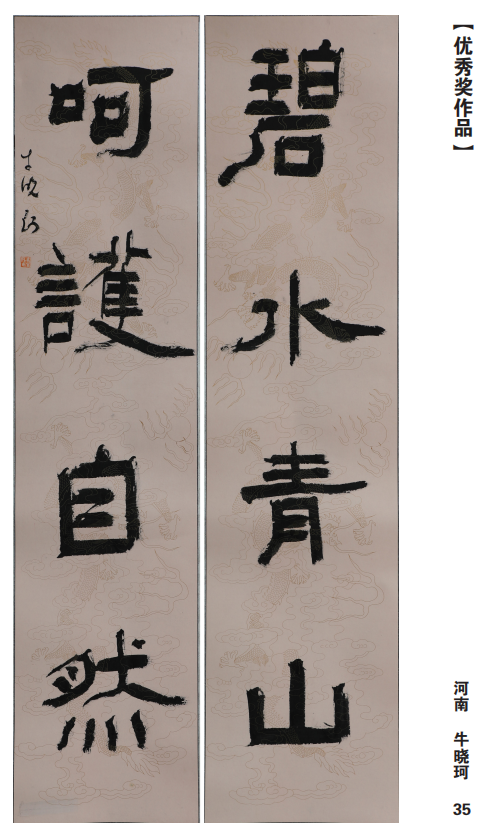 【优秀奖作品】
碧水青山
呵護自然
牛晓珂
河南 牛晓珂
35